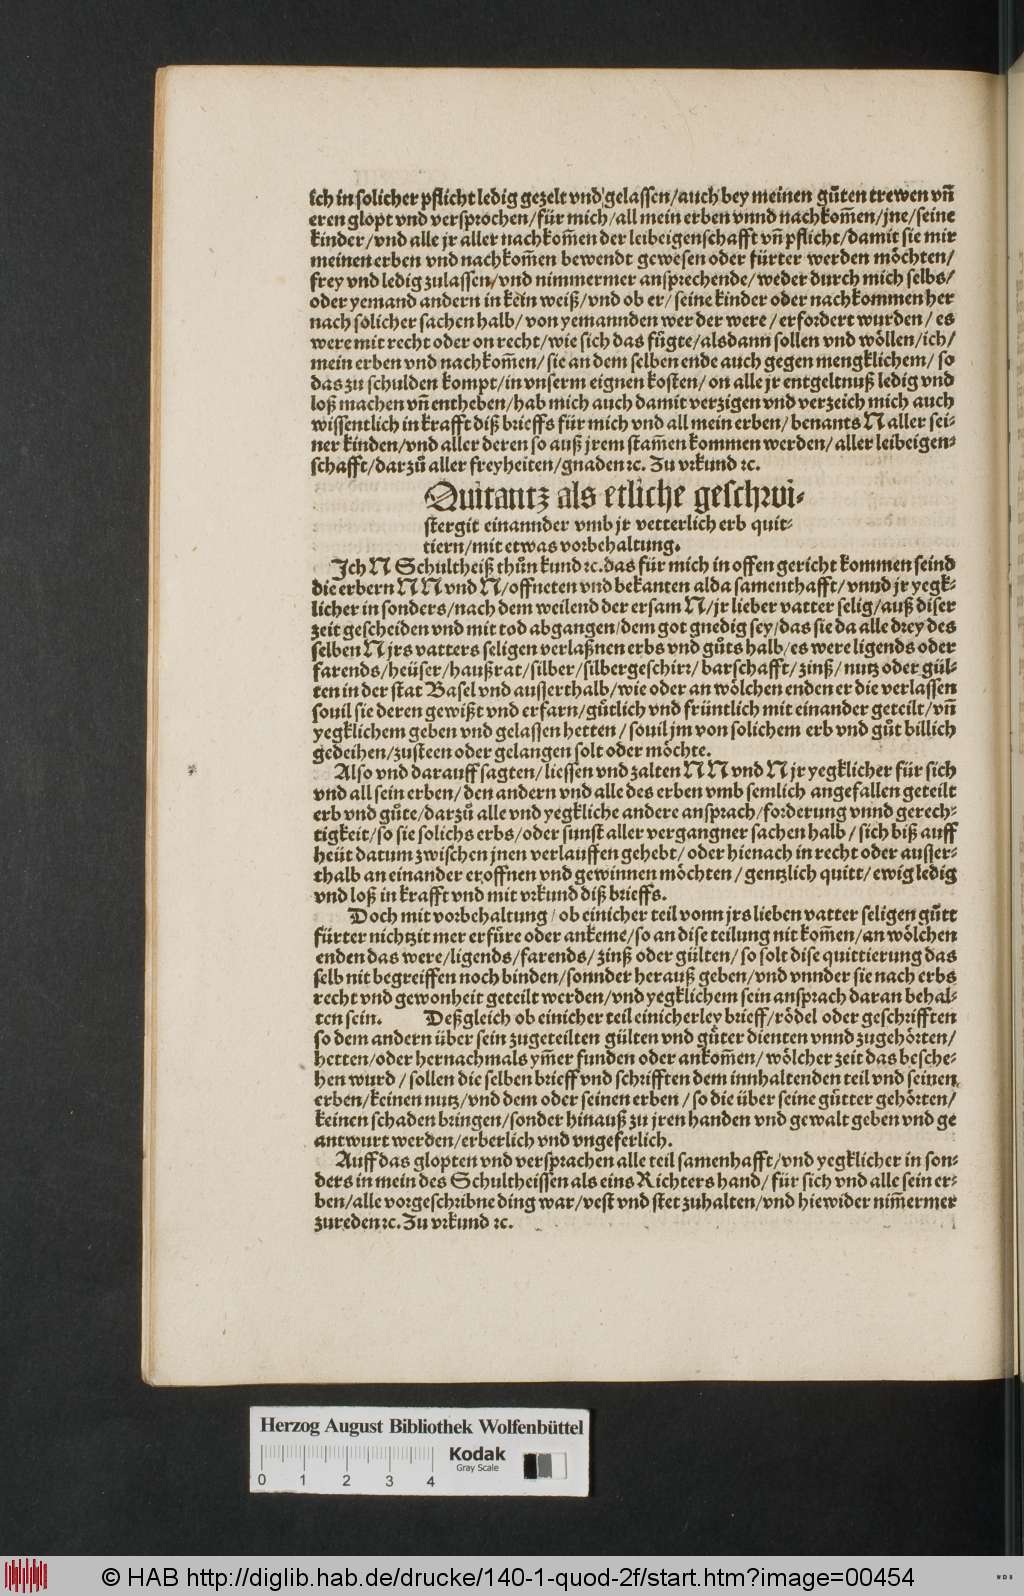 ich in solicher pflicht ledig gezelt vnd gelassen/auch bey meinen gůten trewen vn̄
eren glopt vnd versprochen/für mich/all mein erben vnnd nachkom̄en/jne/seine
kinder/vnd alle jr aller nachkom̄en der leibeigenschafft vn̄ pflicht/damit sie mir
meinen erben vnd nachkom̄en bewendt gewesen oder fürter werden möchten/
frey vnd ledig zulassen/vnd nimmermer ansprechende/weder durch mich selbs/
oder yemand andern in kein weiß/vnd ob er/seine kinder oder nachkommen her
nach sölicher sachen halb/von yemannden wer der were/erfordert wurden/es
were mit recht oder on recht/wie sich das fůgte/alsdann sollen vnd wöllen/ich/
mein erben vnd nachkom̄en/sie an dem selben ende auch gegen mengklichem/so
das zu schulden kompt/in vnserm eignen kosten/on alle jr entgeltnuß ledig vnd
loß machen vn̄ entheben/hab mich auch damit verzigen vnd verzeich mich auch
wissentlich in krafft diß brieffs für mich vnd all mein erben/benants N aller sei-
ner kinden/vnd aller deren so auß jrem stam̄en kommen werden/aller leibeigen-
schafft/darzů aller freyheiten/gnaden ꝛc. Zu vrkund ꝛc.
Quitantz als etliche geschwi-
stergit einannder vmb jr vetterlich erb quit-
tiern/mit etwas vorbehaltung.
Ich N Schultheiß thůn kund ꝛc. das für mich in offen gericht kommen seind
die erbern N N vnd N/offneten vnd bekanten alda samenthafft/vnnd jr yegk-
licher in sonders/nach dem weilend der ersam N/jr lieber vatter selig/auß diser
zeit gescheiden vnd mit tod abgangen/dem got gnedig sey/das sie da alle drey des
selben N jrs vatters seligen verlaßnen erbs vnd gůts halb/es were ligends oder
farends/heüser/haußrat/silber/silbergeschirr/barschafft/zinß/nutz oder gül-
ten in der stat Basel vnd ausserthalb/wie oder an wölchen enden er die verlassen
souil sie deren gewißt vnd erfarn/gůtlich vnd früntlich mit einander geteilt/vn̄
yegklichem geben vnd gelassen hetten/souil jm von solichem erb vnd gůt billich
gedeihen/zusteen oder gelangen solt oder möchte.
Also vnd darauff sagten/liessen vnd zalten N N vnd N jr yegklicher für sich
vnd all sein erben/den andern vnd alle des erben vmb semlich angefallen geteilt
erb vnd gůte/darzů alle vnd yegkliche andere ansprach/forderung vnnd gerech-
tigkeit/so sie solichs erbs/oder sunst aller vergangner sachen halb/sich biß auff
heüt datum zwischen jnen verlauffen gehebt/oder hienach in recht oder ausser-
thalb an einander eroffnen vnd gewinnen möchten/gentzlich quitt/ewig ledig
vnd loß in krafft vnd mit vrkund diß brieffs.
Doch mit vorbehaltung/ob einicher teil vonn jrs lieben vatter seligen gůtt
fürter nichtzit mer erfůre oder ankeme/so an dise teilung nit kom̄en/an wölchen
enden das were/ligends/farends/zinß oder gülten/so solt dise quittierung das
selb nit begreiffen noch binden/sonnder herauß geben/vnd vnnder sie nach erbs
recht vnd gewonheit geteilt werden/vnd yegklichem sein ansprach daran behal-
ten sein. Deßgleich ob einicher teil einicherley brieff/rödel oder geschrifften
so dem andern über sein zugeteilten gülten vnd gůter dienten vnnd zugehörten/
hetten/oder hernachmals ym̄er funden oder ankom̄en/wölcher zeit das besche-
hen wurd/sollen die selben brieff vnd schrifften dem innhaltenden teil vnd seinen
erben/keinen nutz/vnd dem oder seinen erben/so die über seine gůtter gehörten/
keinen schaden bringen/sonder hinauß zu jren handen vnd gewalt geben vnd ge
antwurt werden/erberlich vnd vngeferlich.
Auff das glopten vnd versprachen alle teil samenhafft/vnd yegklicher in son-
ders in mein des Schultheissen als eins Richters hand/für sich vnd alle sein er-
ben/alle vorgeschribne ding war/vest vnd stet zuhalten/vnd hiewider nim̄ermer
zureden ꝛc. Zu vrkund ꝛc.
Herzog August Bibliothek Wolfenbüttel
Kodak
Gray Scale
0 1 2 3 4
© HAB http://diglib.hab.de/drucke/140-1-quod-2f/start.htm?image=00454